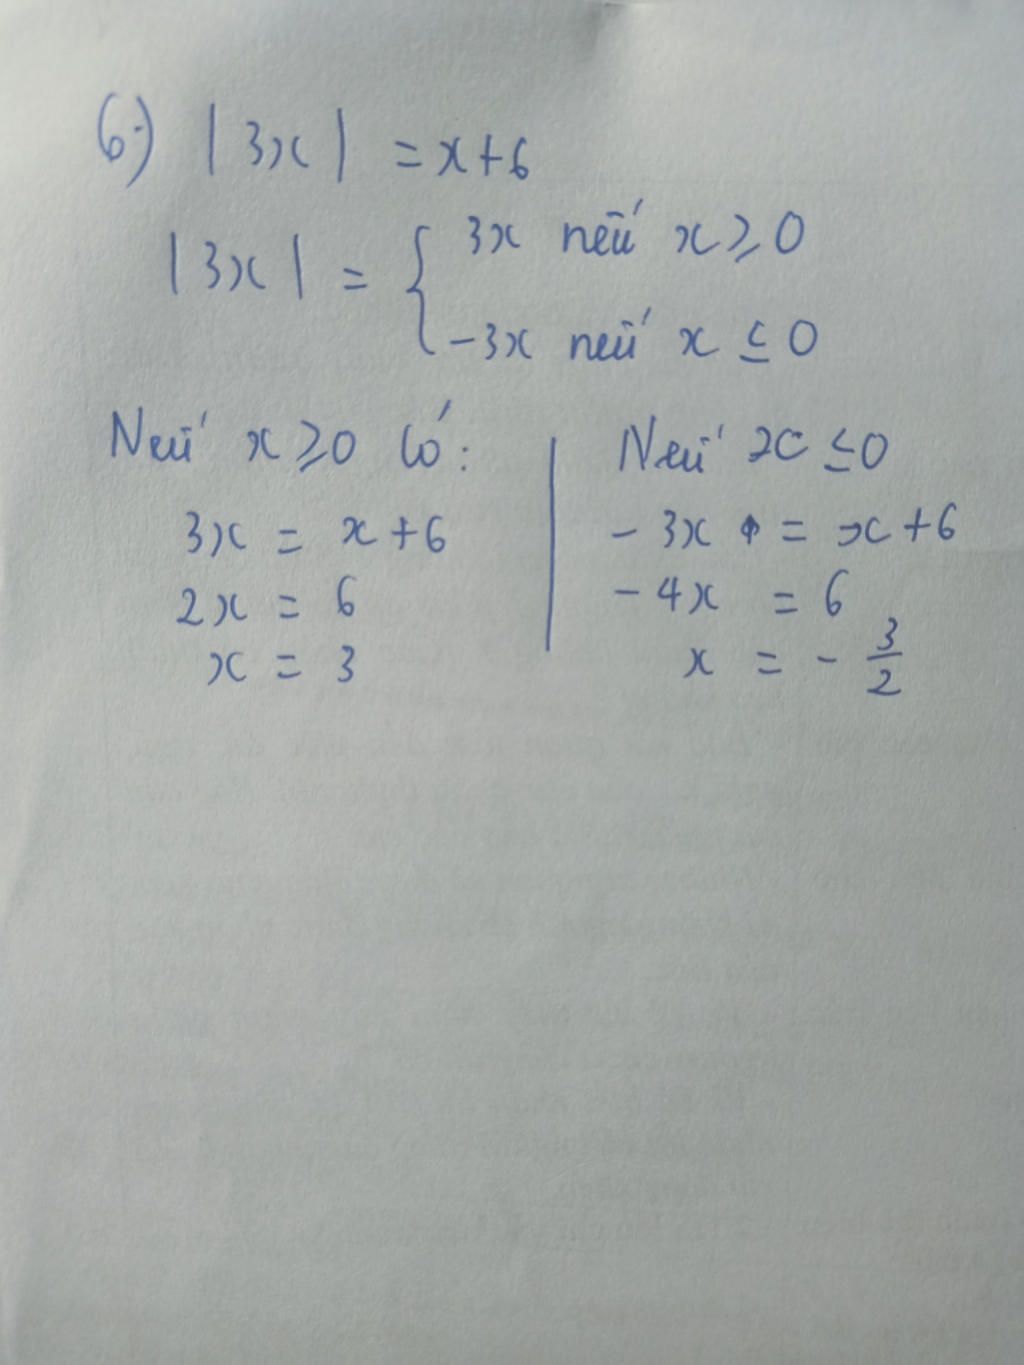 6.) |3x| = x+6
|3x| = { 3x nếu x ≥ 0
-3x nếu x ≤ 0
Nếu x ≥ 0 có:
3x = x+6
2x = 6
x = 3
Nếu x ≤ 0
-3x = x+6
-4x = 6
x = -3/2